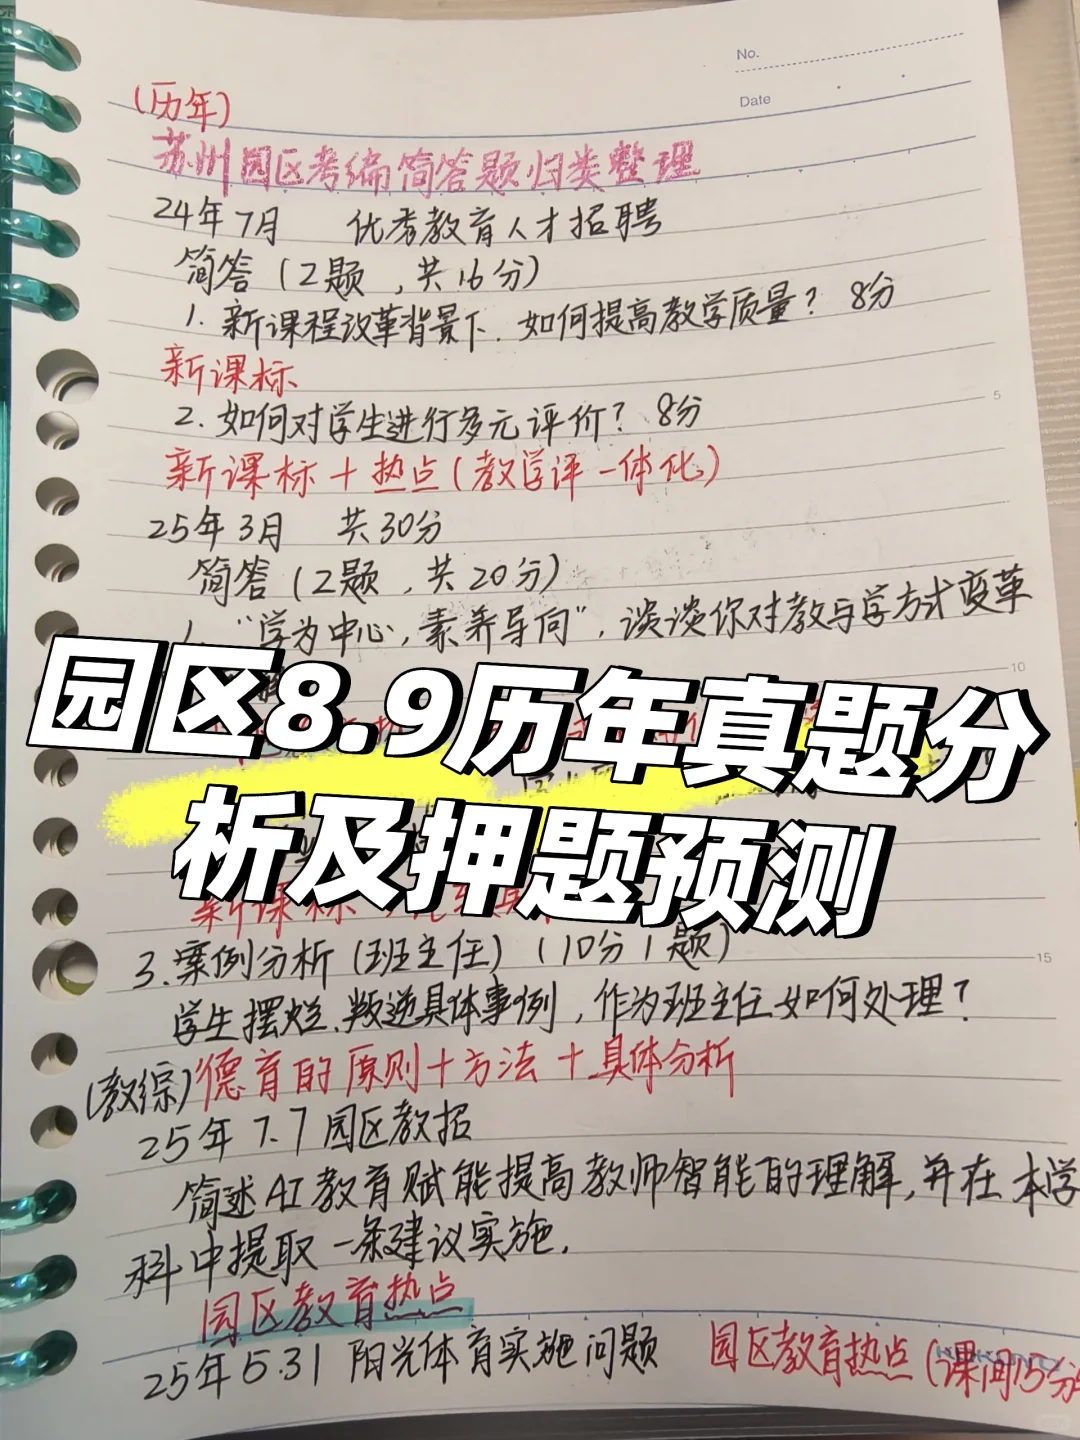 No.
Date
(历年)
苏州园区考编简答题归类整理
24年7月 优秀教育人才招聘
简答(2题,共16分)
1. 新课程改革背景下.如何提高教学质量? 8分
新课标
2. 如何对学生进行多元评价? 8分
新课标+热点(教学评一体化)
25年3月 共30分
简答(2题,共20分)
1. "学为中心,素养导向",谈谈你对教与学方式变革
园区8.9历年真题分
析及押题预测
新课标
3.案例分析(班主任)(10分1题)
学生摆烂、叛逆具体事例,作为班主任如何处理?
(教综)德育的原则+方法+具体分析
25年7.7园区教招
简述AI教育赋能提高教师智能的理解,并在本学
科中提取一条建议实施.
园区教育热点
25年5.31阳光体育实施问题 园区教育热点(课间15分
5
10
15